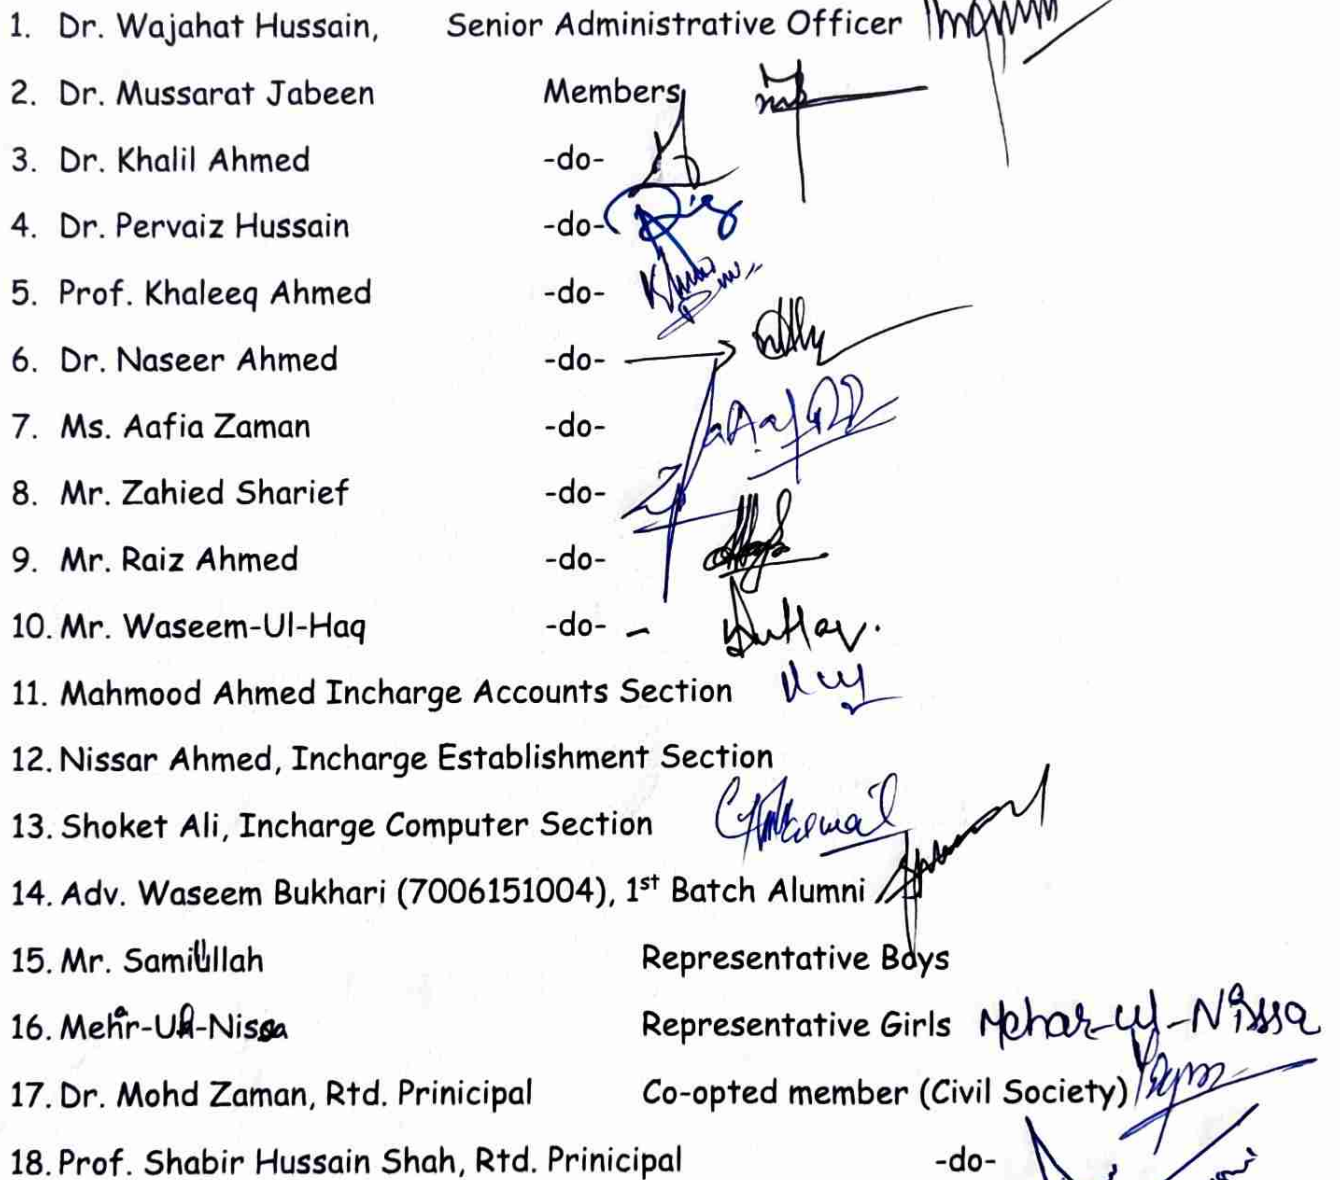 1. Dr. Wajahat Hussain, Senior Administrative Officer
2. Dr. Mussarat Jabeen Members
3. Dr. Khalil Ahmed -do-
4. Dr. Pervaiz Hussain -do-
5. Prof. Khaleeq Ahmed -do-
6. Dr. Naseer Ahmed -do-
7. Ms. Aafia Zaman -do-
8. Mr. Zahied Sharief -do-
9. Mr. Raiz Ahmed -do-
10. Mr. Waseem-Ul-Haq -do-
11. Mahmood Ahmed Incharge Accounts Section
12. Nissar Ahmed, Incharge Establishment Section
13. Shoket Ali, Incharge Computer Section
14. Adv. Waseem Bukhari (7006151004), 1st Batch Alumni
15. Mr. Samiullah Representative Boys
16. Representative Girls Mehar-ul-Nissa
17. Dr. Mohd Zaman, Rtd. Prinicipal Co-opted member (Civil Society)
18. Prof. Shabir Hussain Shah, Rtd. Prinicipal -do-